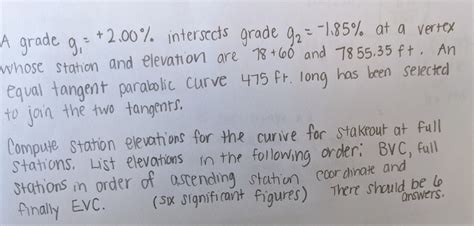 A grade g₁ = +2.00% intersects grade g₂ = -1.85% at a vertex
whose station and elevation are 78+60 and 7855.35 ft. An
equal tangent parabolic curve 475 ft. long has been selected
to join the two tangents.
Compute station elevations for the curive for stakeout at full
stations. List elevations in the following order: BVC, full
stations in order of ascending station coordinate and
finally EVC. (six significant figures) There should be 6
answers.